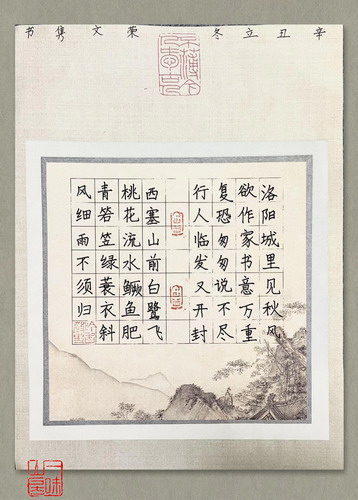 辛丑立冬荣文隽书
洛阳城里见秋风
欲作家书意万重
复恐匆匆说不尽
行人临发又开封
西塞山前白鹭飞
桃花流水鳜鱼肥
青箬笠绿蓑衣斜
风细雨不须归